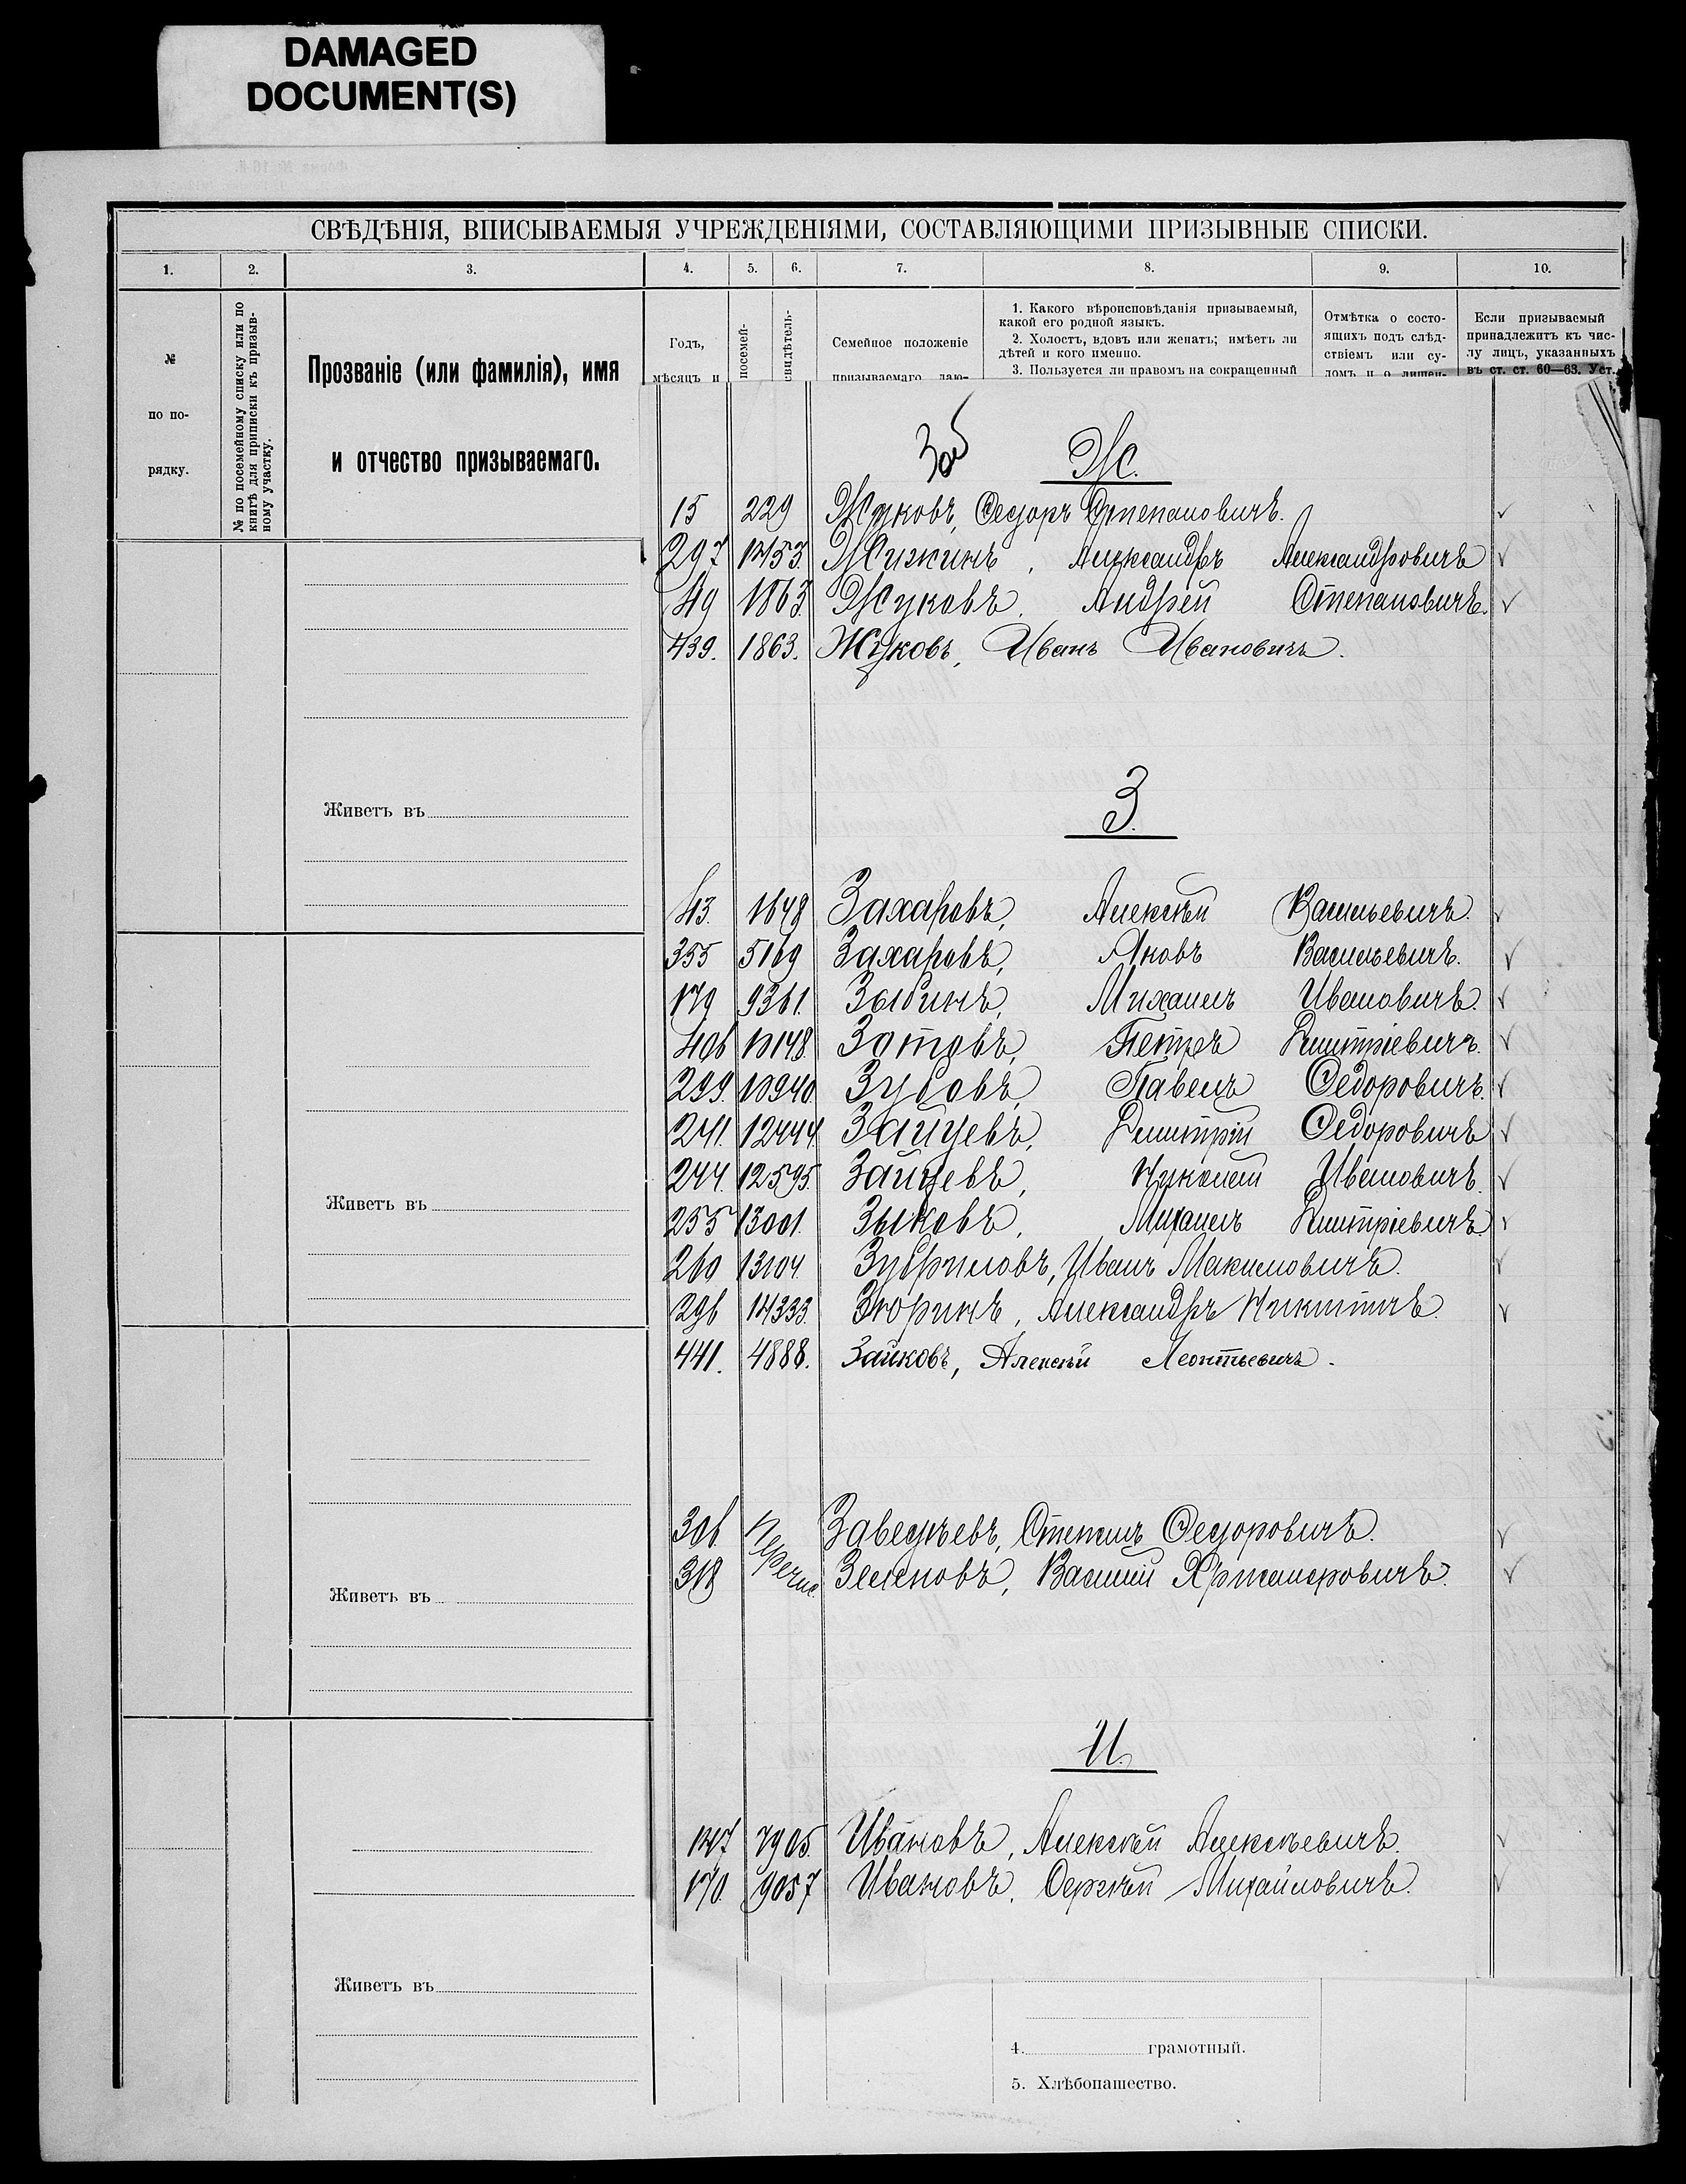 DAMAGED
DOCUMENT(S)
СВѢДѢНІЯ, ВПИСЫВАЕМЫЯ УЧРЕЖДЕНІЯМИ, СОСТАВЛЯЮЩИМИ ПРИЗЫВНЫЕ СПИСКИ.
1. 2. 3. 4. 5. 6. 7. 8. 9. 10.
№
по по-
рядку.
№ по посемейному списку или по
книгѣ для приписки къ призыв-
ному участку.
Прозваніе (или фамилія), имя
и отчество призываемаго.
Годъ,
мѣсяцъ и
посемей-
свидѣтель-
Семейное положеніе
призываемаго, даю-
1. Какого вѣроисповѣданія призываемый,
какой его родной языкъ.
2. Холостъ, вдовъ или женатъ; имѣетъ ли
дѣтей и кого именно.
3. Пользуется ли правомъ на сокращенный
Отмѣтка о состо-
ящихъ подъ слѣд-
ствіемъ или су-
домъ и о лишен-
Если призываемый
принадлежитъ къ чис-
лу лицъ, указанныхъ
въ ст. ст. 60—63. Уст.
Ж.
15 229 Жуковъ, Ѳедоръ Степановичъ.
297 Жижинъ, Александръ Александровичъ
49 1863. Жуковъ, Андрей Степановичъ.
439. 1863. Жуковъ, Иванъ Ивановичъ.
З.
43. 1648 Захаровъ, Алексѣй Васильевичъ.
355 5169 Захаровъ, Яковъ Васильевичъ.
179 9361. Зыбинъ, Михаилъ Ивановичъ.
406 10148 Зотовъ, Петръ Дмитріевичъ.
299. 10940 Зубовъ, Павелъ Ѳедоровичъ.
241. 12444 Зайцевъ, Дмитрій Ѳедоровичъ
244. 12595. Зайцевъ, Николай Ивановичъ.
255 13001. Зыковъ, Михаилъ Дмитріевичъ.
260 13104. Зубриловъ, Иванъ Максимовичъ.
296 14333. Зюринъ, Александръ Никитичъ.
441. 4888. Зайковъ, Алексѣй Леонтьевичъ.
306. Перечис. Степанъ Ѳедоровичъ.
318 Зеленовъ, Василій
И.
147 7905. Ивановъ, Алексѣй Алексѣевичъ.
170. 9057 Ивановъ, Сергѣй Михайловичъ.
Живетъ въ
Живетъ въ
Живетъ въ
Живетъ въ
4. грамотный.
5. Хлѣбопашество.